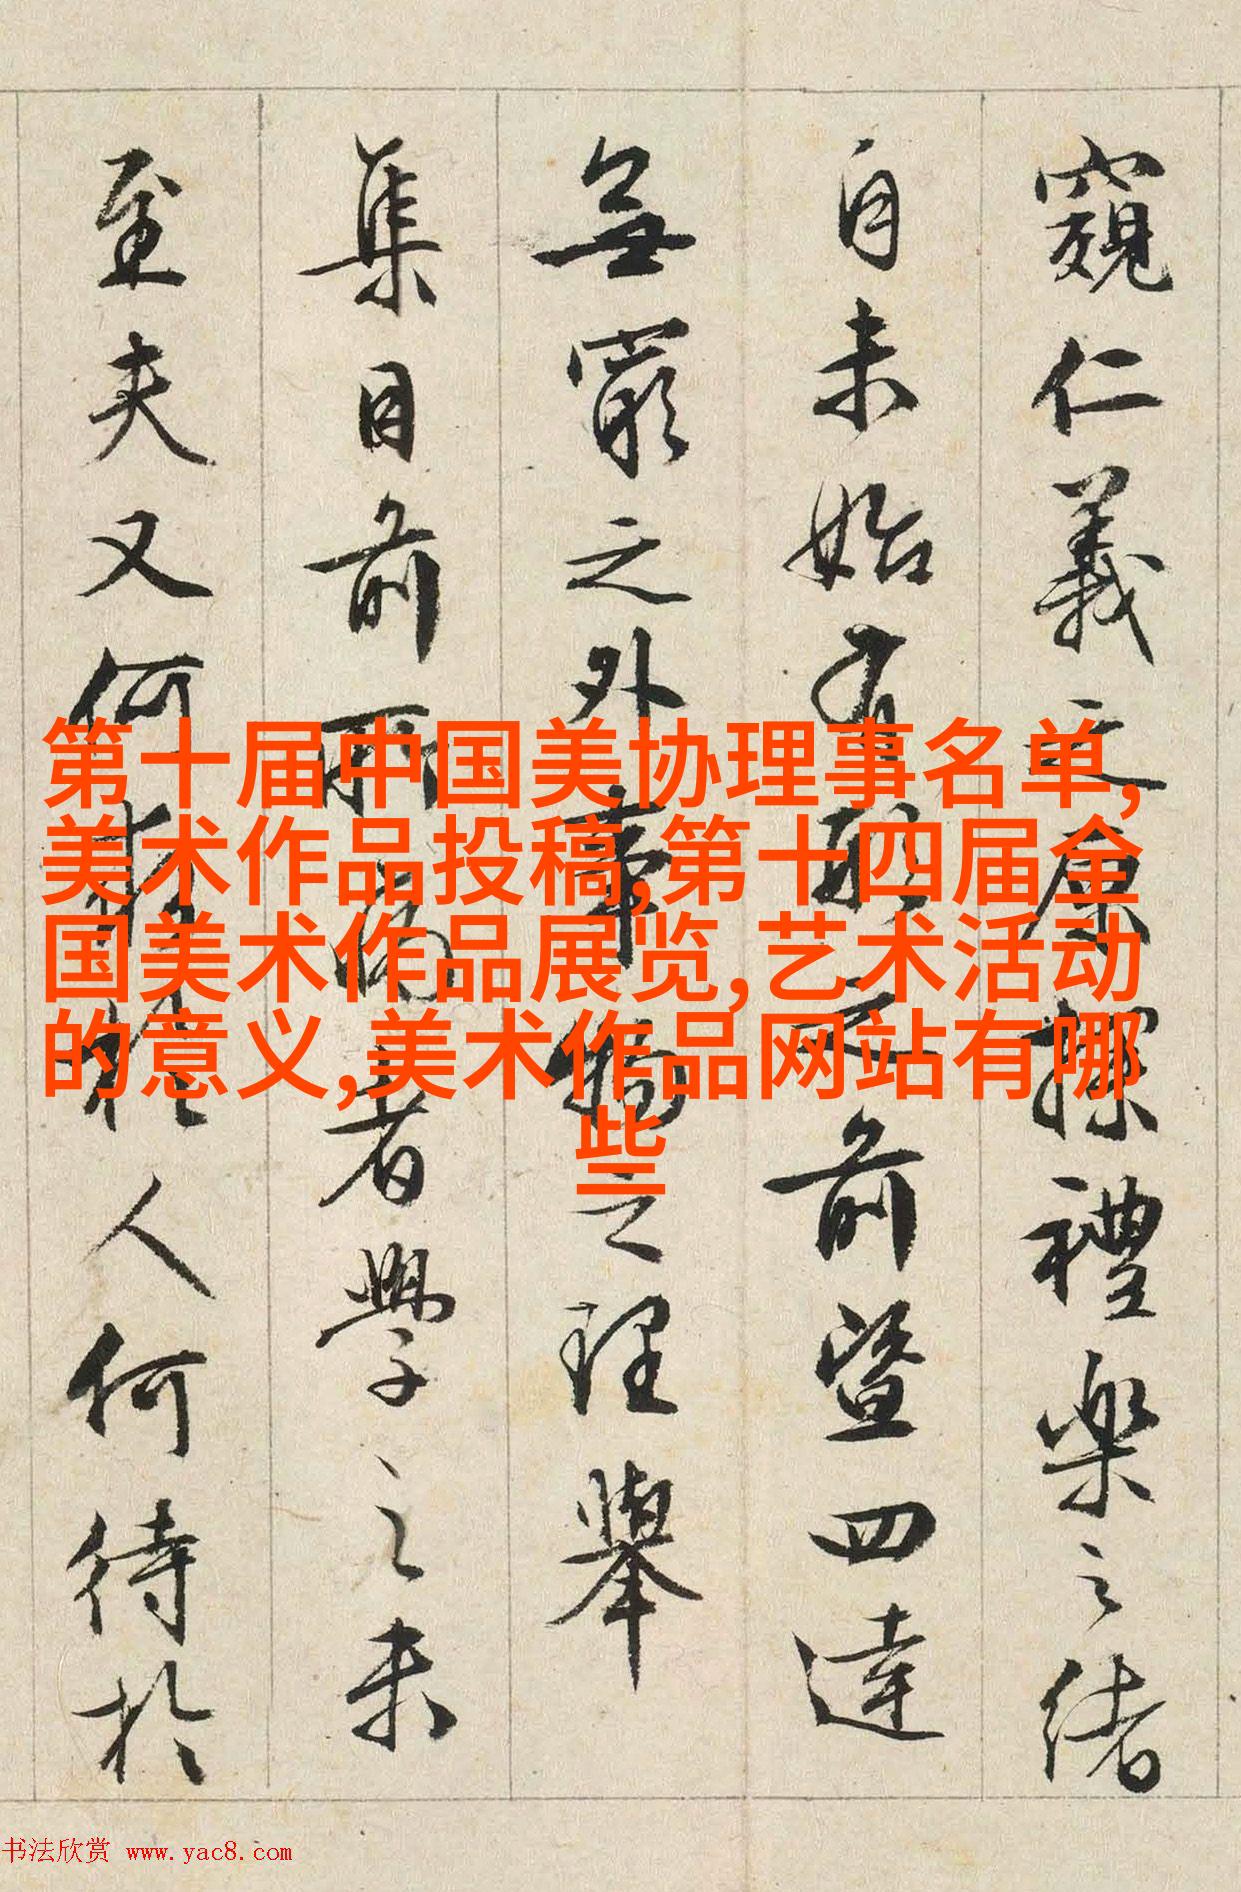 窺仁義之原探禮樂之緒
自未始有形之前暨四達
無窮之外事物之理舉
集目前而者學之未
至夫又何於人何待於
第十届中国美协理事名单,
美术作品投稿,第十四届全
国美术作品展览,艺术活动
的意义,美术作品网站有哪
些
书法欣赏 www.yac8.com